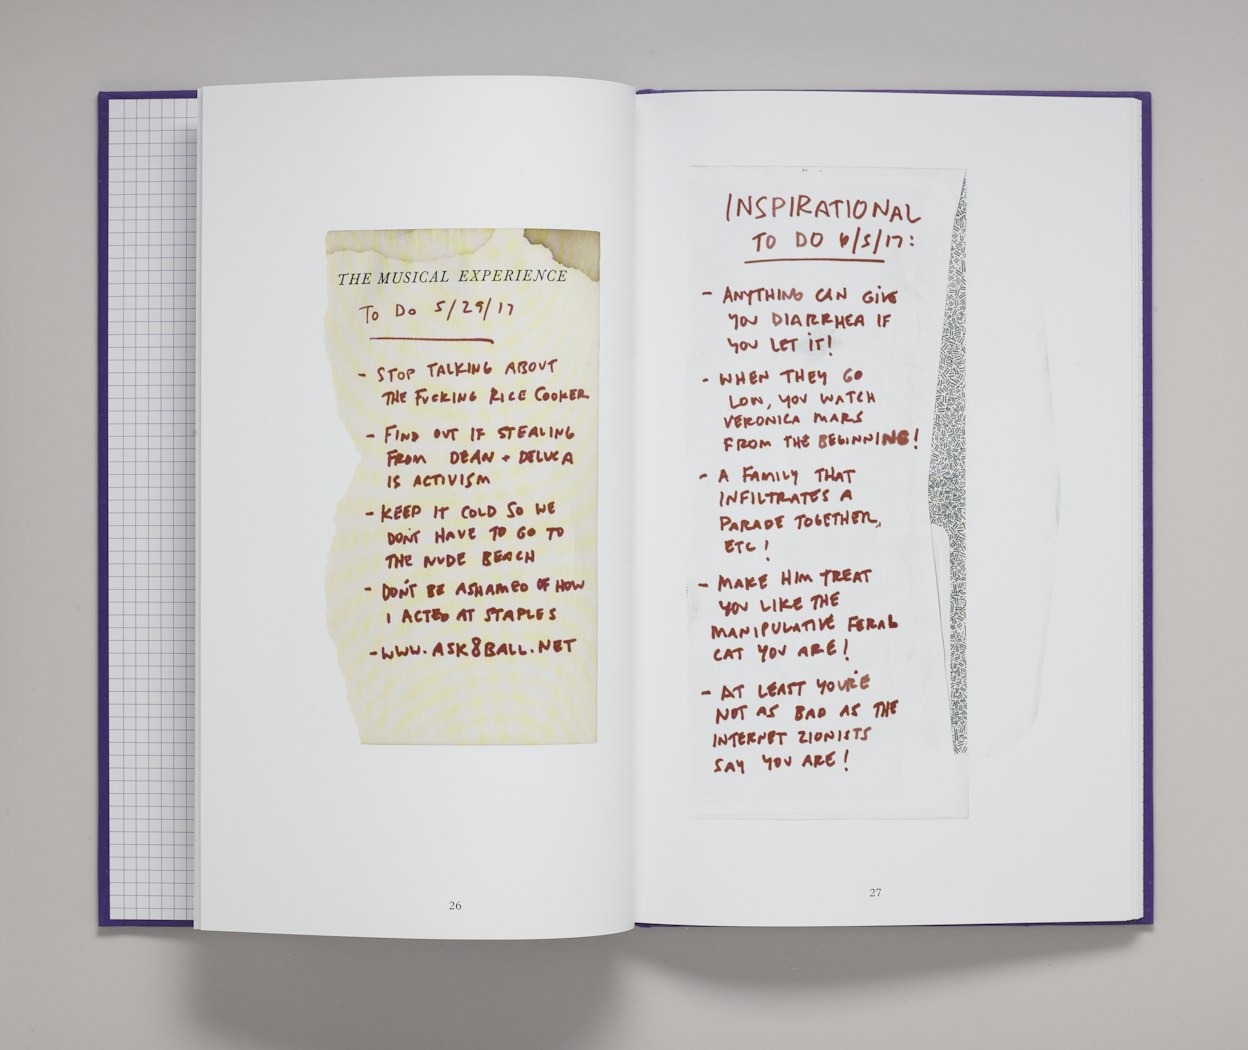 THE MUSICAL EXPERIENCE
To Do 5/29/17
- STOP TALKING ABOUT
THE FUCKING RICE COOKER
- FIND OUT IF STEALING
FROM DEAN + DELUCA
IS ACTIVISM
- KEEP IT COLD SO WE
DON'T HAVE TO GO TO
THE NUDE BEACH
- DON'T BE ASHAMED OF HOW
I ACTED AT STAPLES
- WWW.ASK8BALL.NET
26
INSPIRATIONAL
TO DO 6/5/17:
- ANYTHING CAN GIVE
YOU DIARRHEA IF
YOU LET IT!
- WHEN THEY GO
LOW, YOU WATCH
VERONICA MARS
FROM THE BEGINNING!
- A FAMILY THAT
INFILTRATES A
PARADE TOGETHER,
ETC!
- MAKE HIM TREAT
YOU LIKE THE
MANIPULATIVE FERAL
CAT YOU ARE!
- AT LEAST YOU'RE
NOT AS BAD AS THE
INTERNET ZIONISTS
SAY YOU ARE!
27